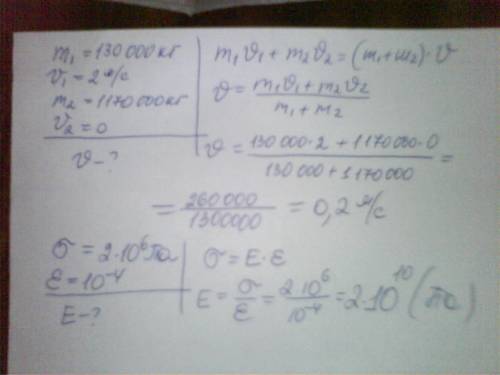 m₁ = 130 000 кг
v₁ = 2 м/с
m₂ = 1170 000 кг
v₂ = 0
v - ?
m₁v₁ + m₂v₂ = (m₁ + m₂) · v
v = (m₁v₁ + m₂v₂) / (m₁ + m₂)
v = (130 000 · 2 + 1170 000 · 0) / (130 000 + 1170000) =
= 260 000 / 1300000 = 0,2 м/с
σ = 2·10⁶ Па
ε = 10⁻⁴
E - ?
σ = E · ε
E = σ / ε = 2·10⁶ / 10⁻⁴ = 2·10¹⁰ (Па)